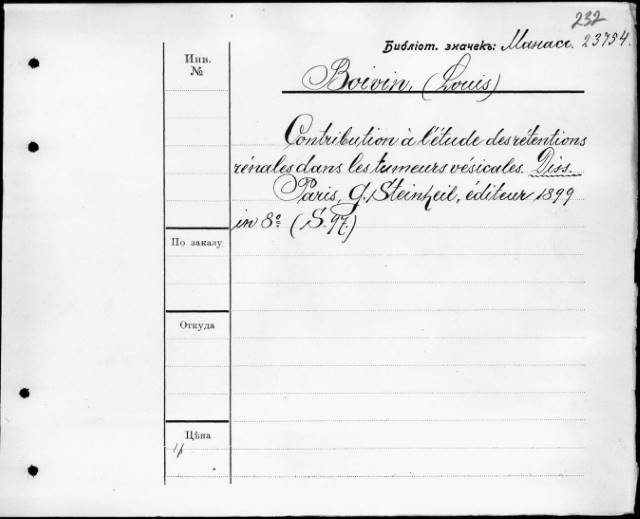 232
Библіот. значекъ: Манасс. 23754.
Инв.
№
Boivin, (Louis)
Contribution à l'étude des rétentions
rénales dans les tumeurs vésicales. Diss.
Paris, G. Steinheil, éditeur 1899
in 8º (S. 97.)
По заказу
Откуда
Цѣна